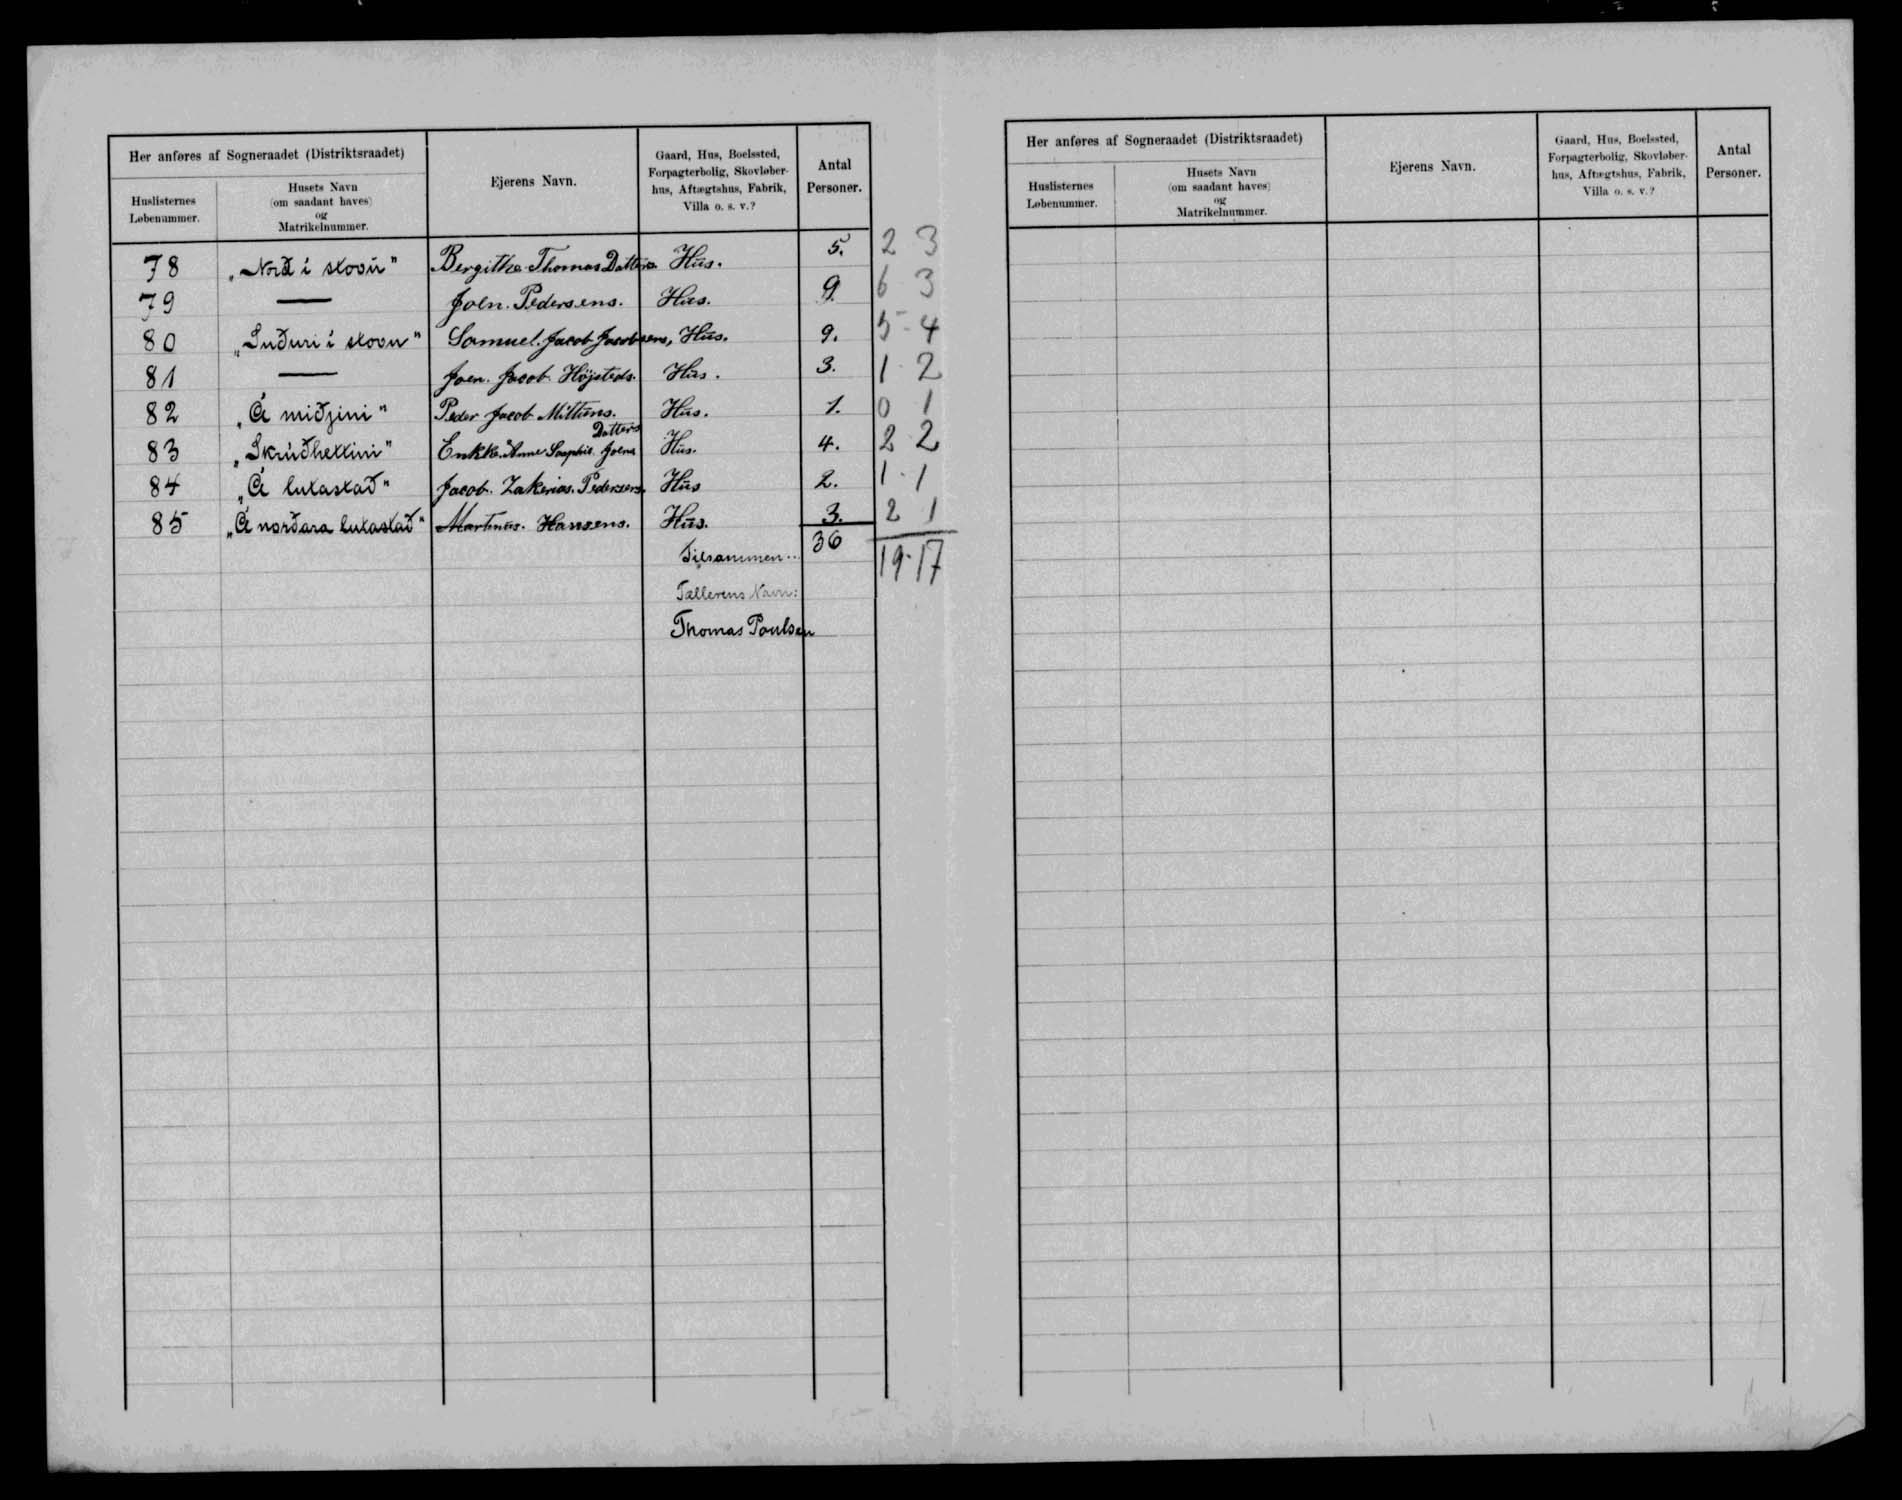 Her anføres af Sogneraadet (Distriktsraadet)
Huslisternes Løbenummer.
Husets Navn (om saadant haves) og Matrikelnummer.
Ejerens Navn.
Gaard, Hus, Boelssted, Forpagterbolig, Skovløberhus, Aftægtshus, Fabrik, Villa o. s. v.?
Antal Personer.
78 „Norð i stovu" Bergithe Thomas Datters Hus. 5. 2 3
79 — Joen. Pedersens. Hus. 9. 6 3
80 „Suðuri í stovu" Samuel. Jacob Jacobsens, Hus. 9. 5-4
81 — Joen. Jacob. Höjsteds. Hus. 3. 1-2
82 „Á miðjini" Peder Jacob Mittuns. Hus. 1. 0 1
83 „Skrúðhettini" Enkke. Anne Sophie. Joens Datters Hus. 4. 2 2
84 „Á lutastað" Jacob. Zakerias. Pedersens. Hus 2. 1-1
85 „Á norðara lutastað" Martinus. Hansens. Hus. 3. 2 1
Tilsammen... 36 19-17
Tællerens Navn:
Thomas Poulsen
Her anføres af Sogneraadet (Distriktsraadet)
Huslisternes Løbenummer.
Husets Navn (om saadant haves) og Matrikelnummer.
Ejerens Navn.
Gaard, Hus, Boelssted, Forpagterbolig, Skovløberhus, Aftægtshus, Fabrik, Villa o. s. v.?
Antal Personer.